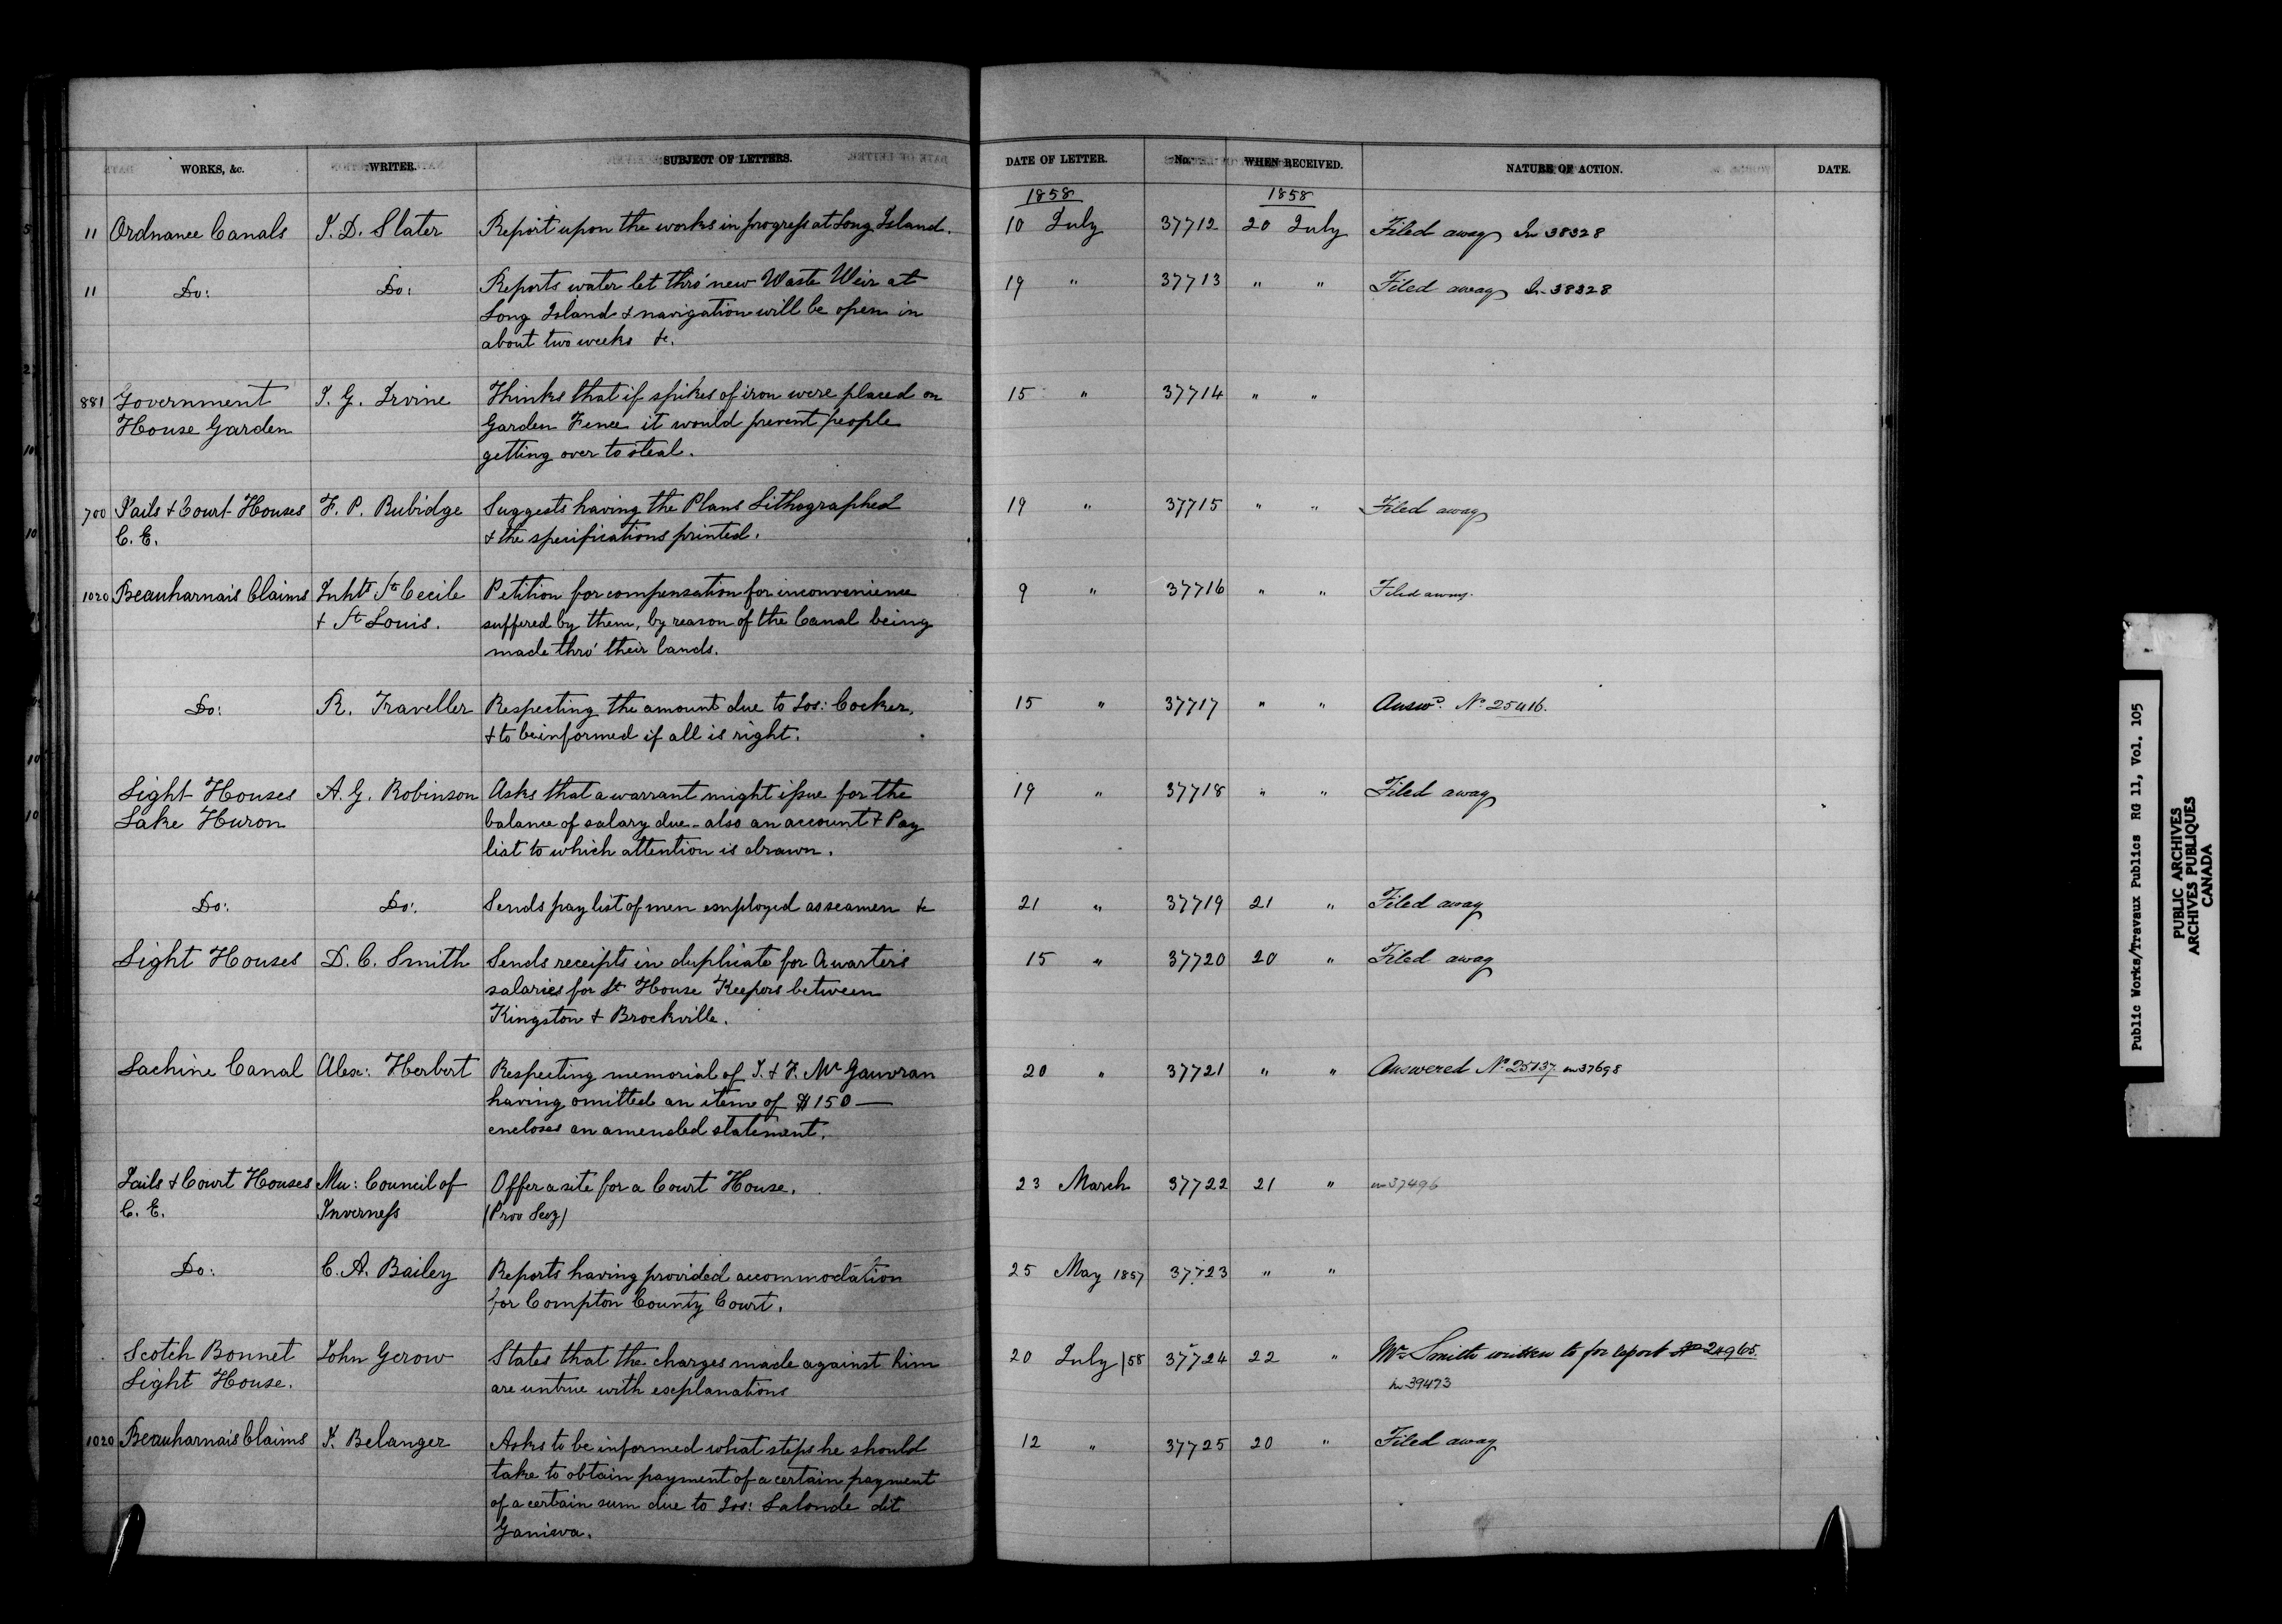 WORKS, &c. WRITER. SUBJECT OF LETTERS. DATE OF LETTER. No. WHEN RECEIVED. NATURE OF ACTION. DATE.
1858 1858
11 Ordnance Canals J. D. Slater Report upon the works in progress at Long Island. 10 July 37712 20 July Filed away In 38328
11 Do: Do: Reports water let thro' new Waste Weir at 19 " 37713 " " Filed away In 38328
Long Island & navigation will be open in
about two weeks &c.
881 Government J. G. Irvine Thinks that if spikes of iron were placed on 15 " 37714 " "
House Garden Garden Fence it would prevent people
getting over to steal.
700 Jails & Court Houses F. P. Rubidge Suggests having the Plans Lithographed 19 " 37715 " " Filed away
C. E. & the specifications printed.
1020 Beauharnais Claims Inhts St Cecile Petition for compensation for inconvenience 9 " 37716 " " Filed away.
& St Louis. suffered by them, by reason of the Canal being
made thro' their lands.
Do: R. Traveller Respecting the amount due to Jos: Cocker, 15 " 37717 " " Answd. No. 25416.
& to be informed if all is right.
Light Houses A. G. Robinson Asks that a warrant might issue for the 19 " 37718 " " Filed away
Lake Huron balance of salary due - also an account & Pay
list to which attention is drawn.
Do: Do: Sends pay list of men employed as seamen &c 21 " 37719 21 " Filed away
Light Houses D. C. Smith Sends receipts in duplicate for Quarter's 15 " 37720 20 " Filed away
salaries for Lt House Keepers between
Kingston & Brockville.
Lachine Canal Alex: Herbert Respecting memorial of J. & F. McGauvran 20 " 37721 " " Answered No. 25137 on 37698
having omitted an item of $150 —
encloses an amended statement.
Jails & Court Houses Mu: Council of Offer a site for a Court House. 23 March 37722 21 " on 37496
C. E. Inverness (Prov Secy)
Do: C. A. Bailey Reports having provided accommodation 25 May 1857 37723 " "
for Compton County Court.
Scotch Bonnet John Gerow States that the charges made against him 20 July /58 37724 22 " Mr Smith written to for report No 24965.
Light House. are untrue with explanations In 39473
1020 Beauharnais Claims J. Belanger Asks to be informed what steps he should 12 " 37725 20 " Filed away
take to obtain payment of a certain payment
of a certain sum due to Jos: Lalonde dit
Public Works/Travaux Publics RG 11, Vol. 105
PUBLIC ARCHIVES
ARCHIVES PUBLIQUES
CANADA